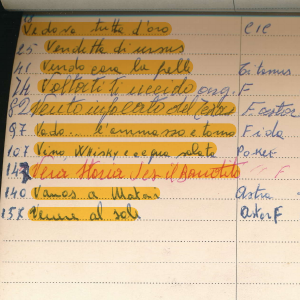 Vedova tutta d'oro CIC
25 Vendetta di ursus
41 Vendo cara la pelle Titanus
74 Voltati ti uccido orig. F
82 Vento infuocato del Texas Fortor
97 Vado... l'ammazzo e torno Fida
107 Vino, Whisky e acqua salata Poker
147 Vera Storia Jes il Bandito " F
140 Vamos a Matar Astra
157 Venere al sole Astor F